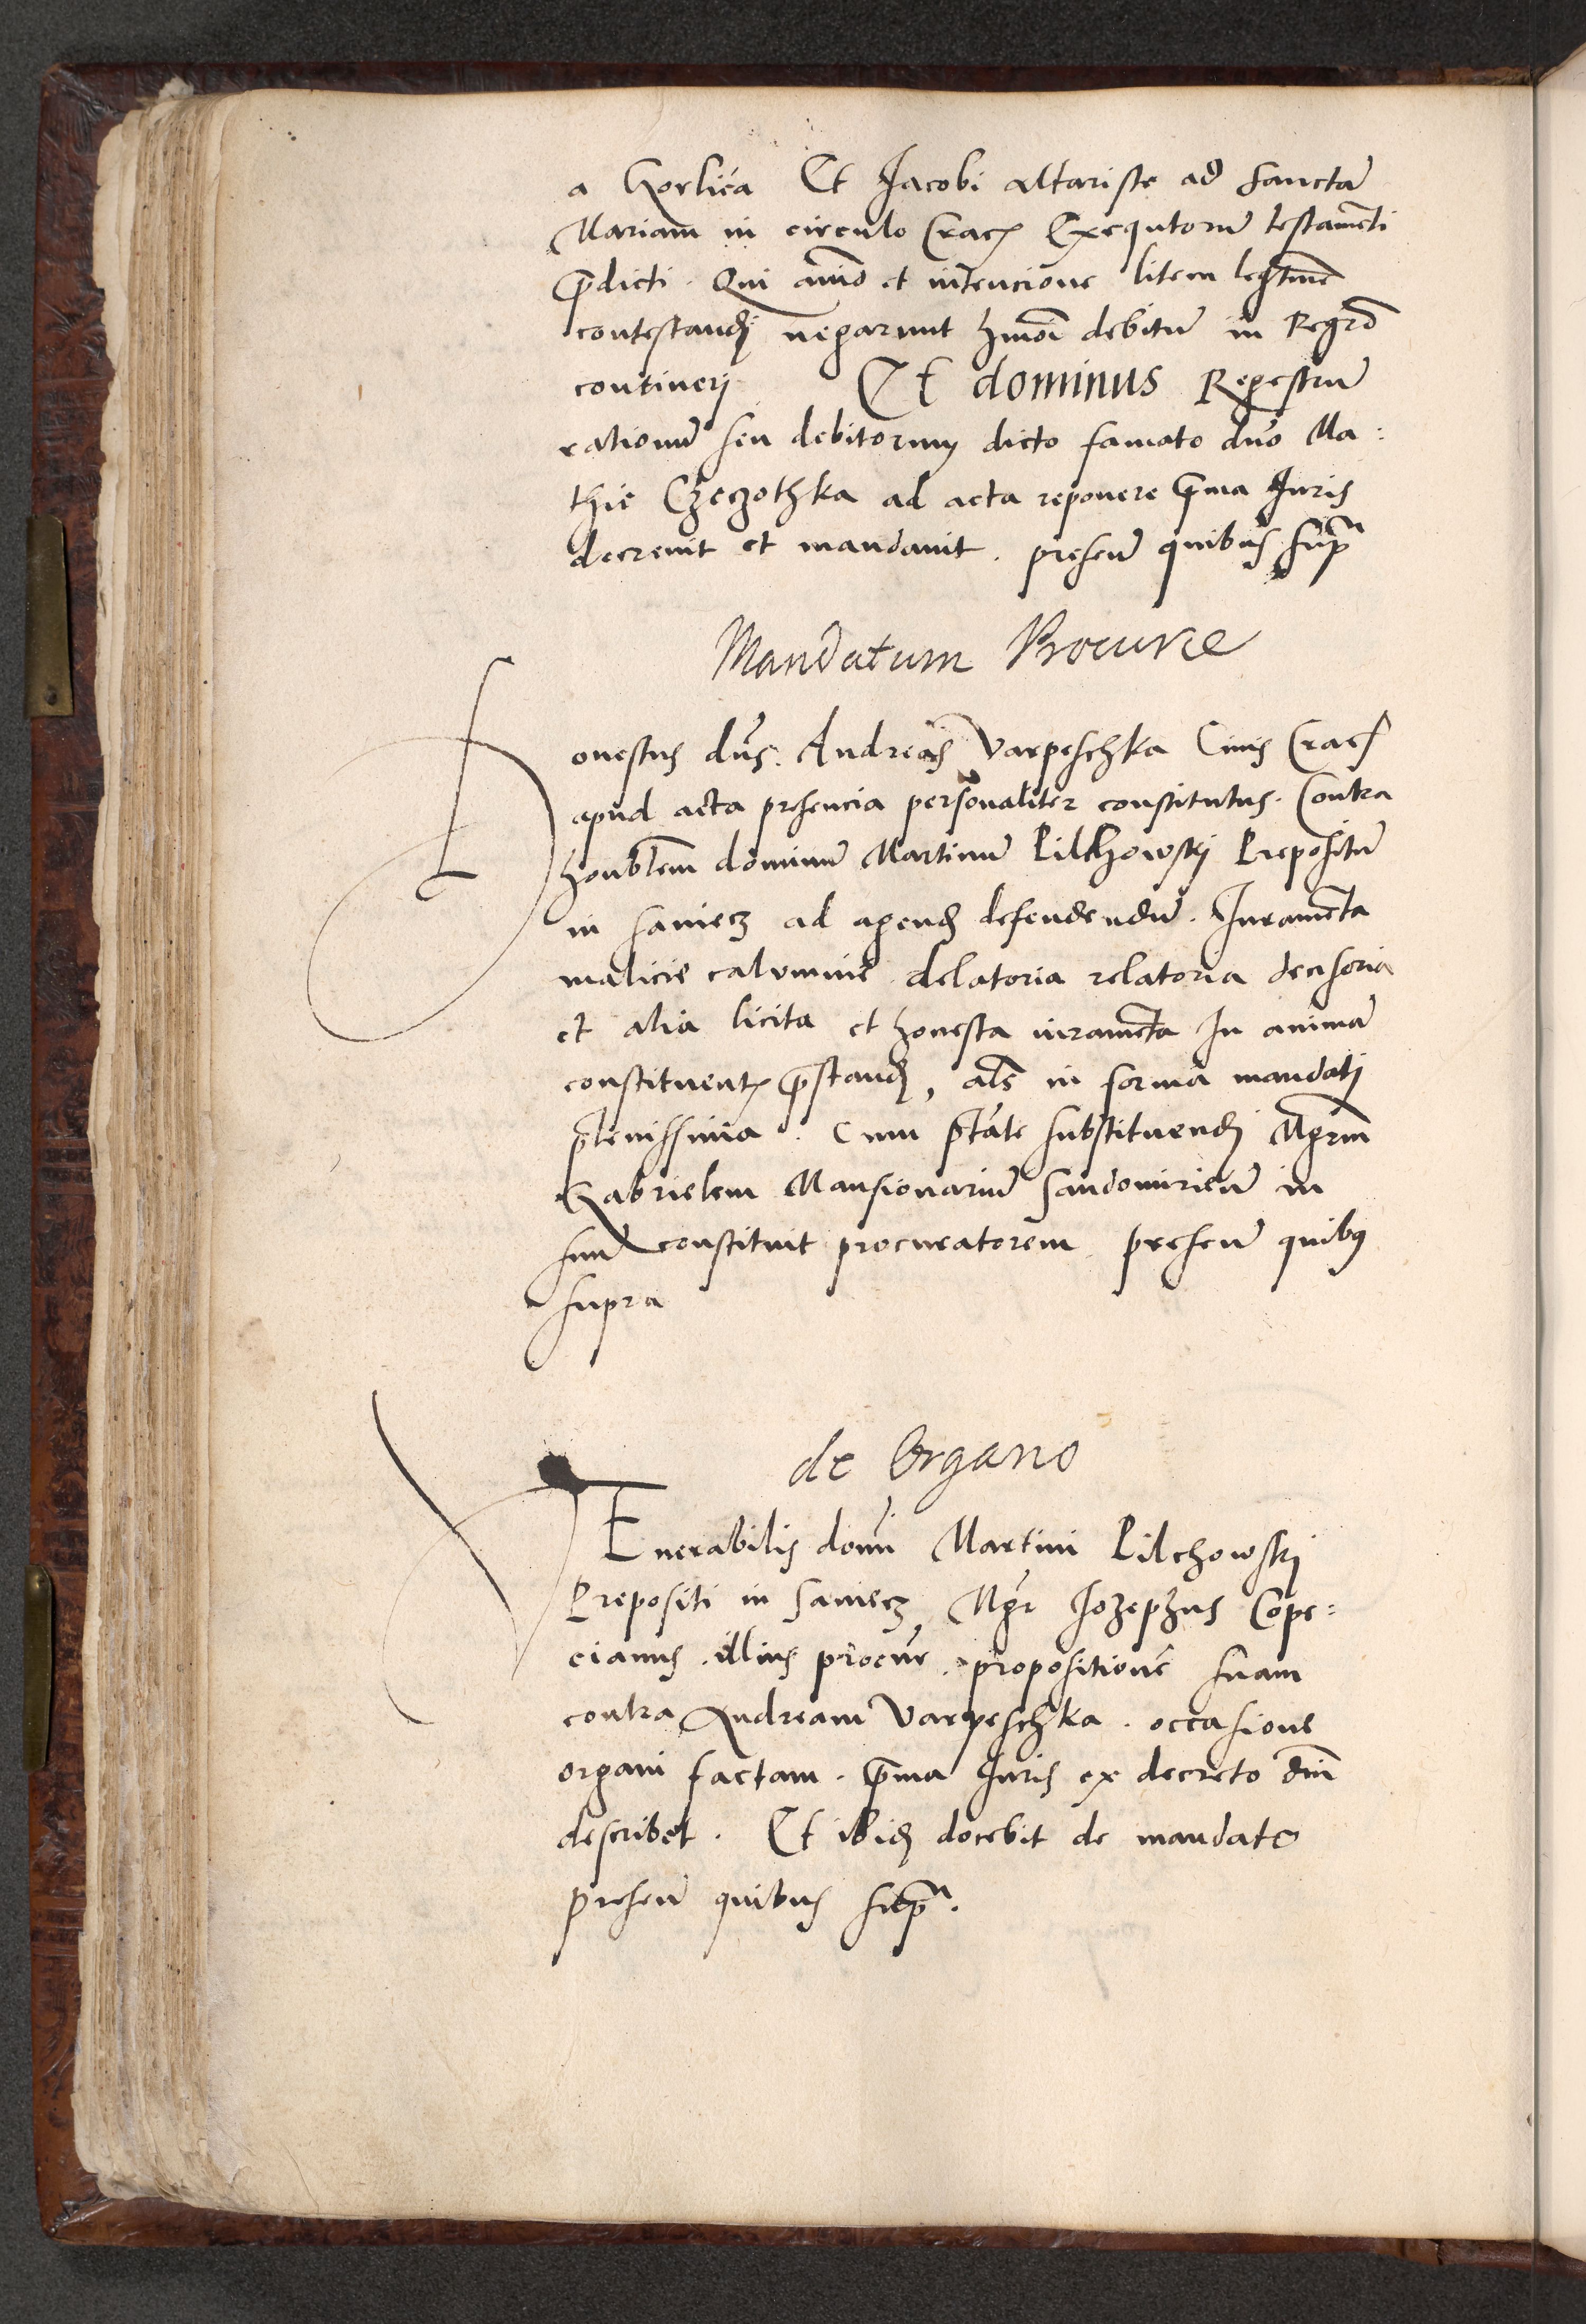 a Gorlica Et Jacobi altariste ad sanctã
Mariam in circulo Crac Exequtorũ testamẽti
p̃dicti. Qui aĩo et intencione litem legtimẽ
contestandj negarunt hmõi debitũ in Regrõ
contineri Et dominus Regestrũ
rationũ seu debitorum dicto famato dño Ma:
thie Czeczothka ad acta reponere p̃ma Juris
decrevit et mandavit. presenũ quibus sup̃ª
Mandatum Procure
Honestus dñs. Andreas Varpeschka Civis Crac
apud acta presencia personaliter constitutus. Contra
honblẽm dominũ Martinũ Pilchowskj Prepositũ
in saniecz ad agend defendendũ. Juramẽta
malicie calumnie delatoria relatoria decisoria
et alia licita et honesta iuramẽta In animã
constituent p̃stand, als in forma mandatj
plenissima. Cum ptãte substituendj Mgrm̃
Gabrielem Mansionariũ Sandomirieñ in
suũ constituit procuratorem presenũ quibus
supra
de Organo
VEnerabilis domĩ Martini Pilchowskj
Prepositi in saniecz Mgr̃ Jozephus Cope:
cianus illius procur̃. propositionẽ suam
contra Andream Varpeschka. occasione
organi factam. p̃ma Juris ex decreto dñi
describet. Et ibid docebit de mandato
presenũ quibus sup̃ª.